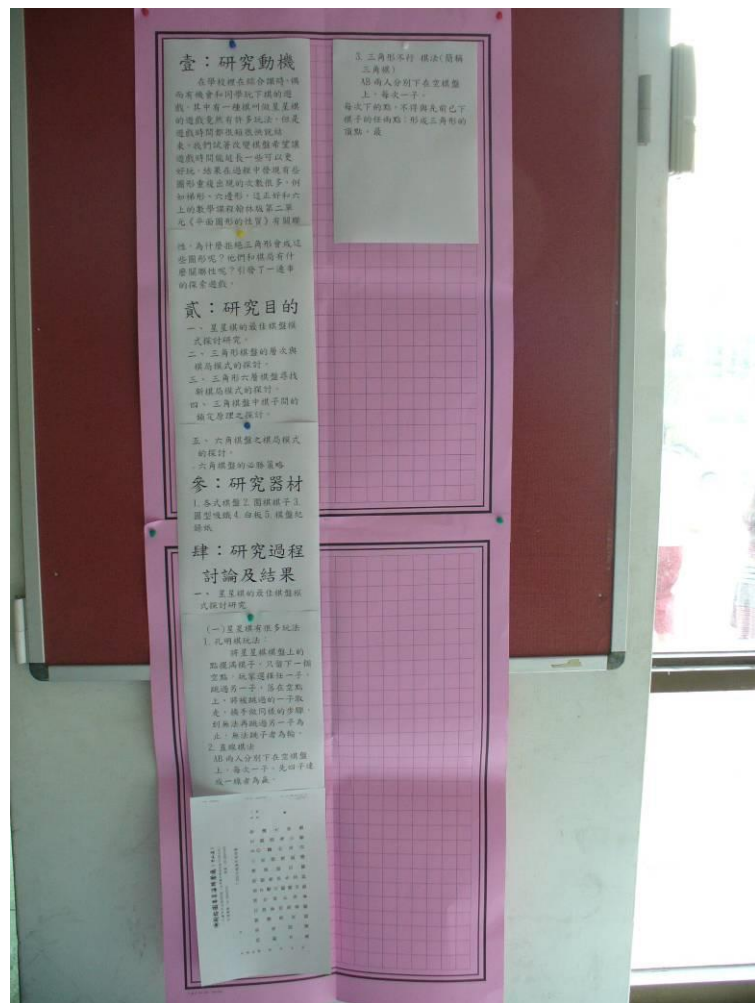 壹：研究動機
在學校裡在綜合課時，偶
而有機會和同學玩下棋的遊
戲，其中有一種棋叫做星星棋
的遊戲竟然有許多玩法，但是
遊戲時間都很短很快就結
束，我們試著改變棋盤希望讓
遊戲時間能延長一些可以更
好玩，結果在過程中發現有些
圖形重複出現的次數很多，例
如梯形、六邊形，這正好和六
上的數學課程翰林版第二單
元《平面圖形的性質》有關聯
性，為什麼拒絕三角形會成這
些圖形呢？他們和棋局有什
麼關聯性呢？引發了一連串
的探索遊戲。
貳：研究目的
一、 星星棋的最佳棋盤模
式探討研究。
二、 三角形棋盤的層次與
棋局模式的探討。
三、 三角形六層棋盤尋找
新棋局模式的探討。
四、 三角棋盤中棋子間的
鎖定原理之探討。
五、 六角棋盤之棋局模式
的探討。
六角棋盤的必勝策略
參：研究器材
1.各式棋盤2.圍棋棋子3.
圓型吸鐵4.白板5.棋盤紀
錄紙
肆：研究過程
討論及結果
一、 星星棋的最佳棋盤模
式探討研究
(一)星星棋有很多玩法
1.孔明棋玩法：
將星星棋棋盤上的
點擺滿棋子，只留下一個
空點，玩家選擇任一子，
跳過另一子，落在空點
上，將被跳過的一子取
走，換手做同樣的步驟，
到無法再跳過另一子為
止，無法跳子者為輸。
2.直線棋法
AB兩人分別下在空棋盤
上，每次一子，先四子連
成一線者為贏。
5.三角形不行 棋法(簡稱
三角棋)
AB兩人分別下在空棋盤
上，每次一子。
每次下的點，不得與先前已下
棋子的任兩點；形成三角形的
頂點。最